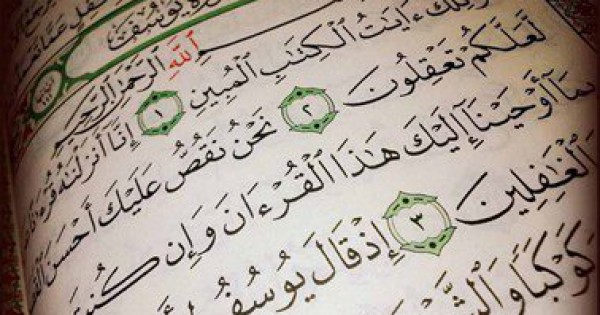 سُورَةُ يُوسُفَ
ٱللَّهِ ٱلرَّحْمَٰنِ ٱلرَّحِيمِ
ءَايَٰتُ ٱلْكِتَٰبِ ٱلْمُبِينِ ١ إِنَّا أَنزَلْنَٰهُ
لَّعَلَّكُمْ تَعْقِلُونَ ٢ نَحْنُ نَقُصُّ عَلَيْكَ أَحْسَنَ
بِمَآ أَوْحَيْنَآ إِلَيْكَ هَٰذَا ٱلْقُرْءَانَ وَإِن
ٱلْغَٰفِلِينَ ٣ إِذْ قَالَ يُوسُفُ
كَوْكَبًا